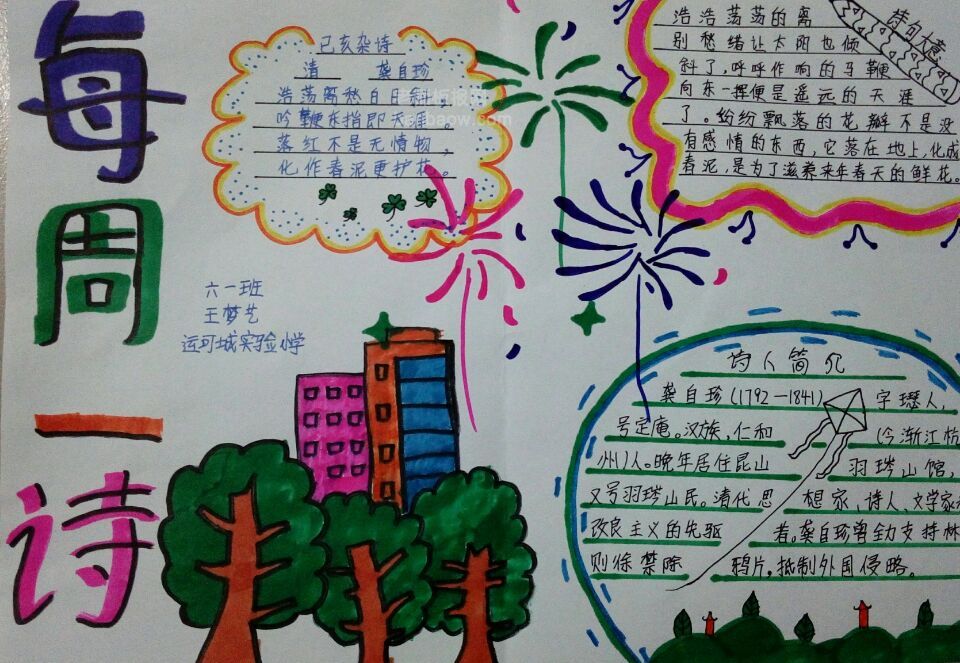 每周一诗
已亥杂诗
清 龚自珍
浩荡离愁白日斜,
吟鞭东指即天涯。
落红不是无情物,
化作春泥更护花。
六一班
王梦艺
运河城实验小学
诗句大意
浩浩荡荡的离
别愁绪让太阳也倾
斜了,呼呼作响的马鞭
向东一挥便是遥远的天涯
了。纷纷飘落的花瓣不是没
有感情的东西,它落在地上,化成
春泥,是为了滋养来年春天的鲜花。
诗人简介
龚自珍(1792—1841) 字璱人,
号定庵。汉族,仁和 (今浙江杭
州)人。晚年居住昆山 羽琌山馆,
又号羽琌山民。清代思 想家、诗人、文学家
改良主义的先驱 者。龚自珍曾全力支持林
则徐禁除 鸦片。抵制外国侵略。